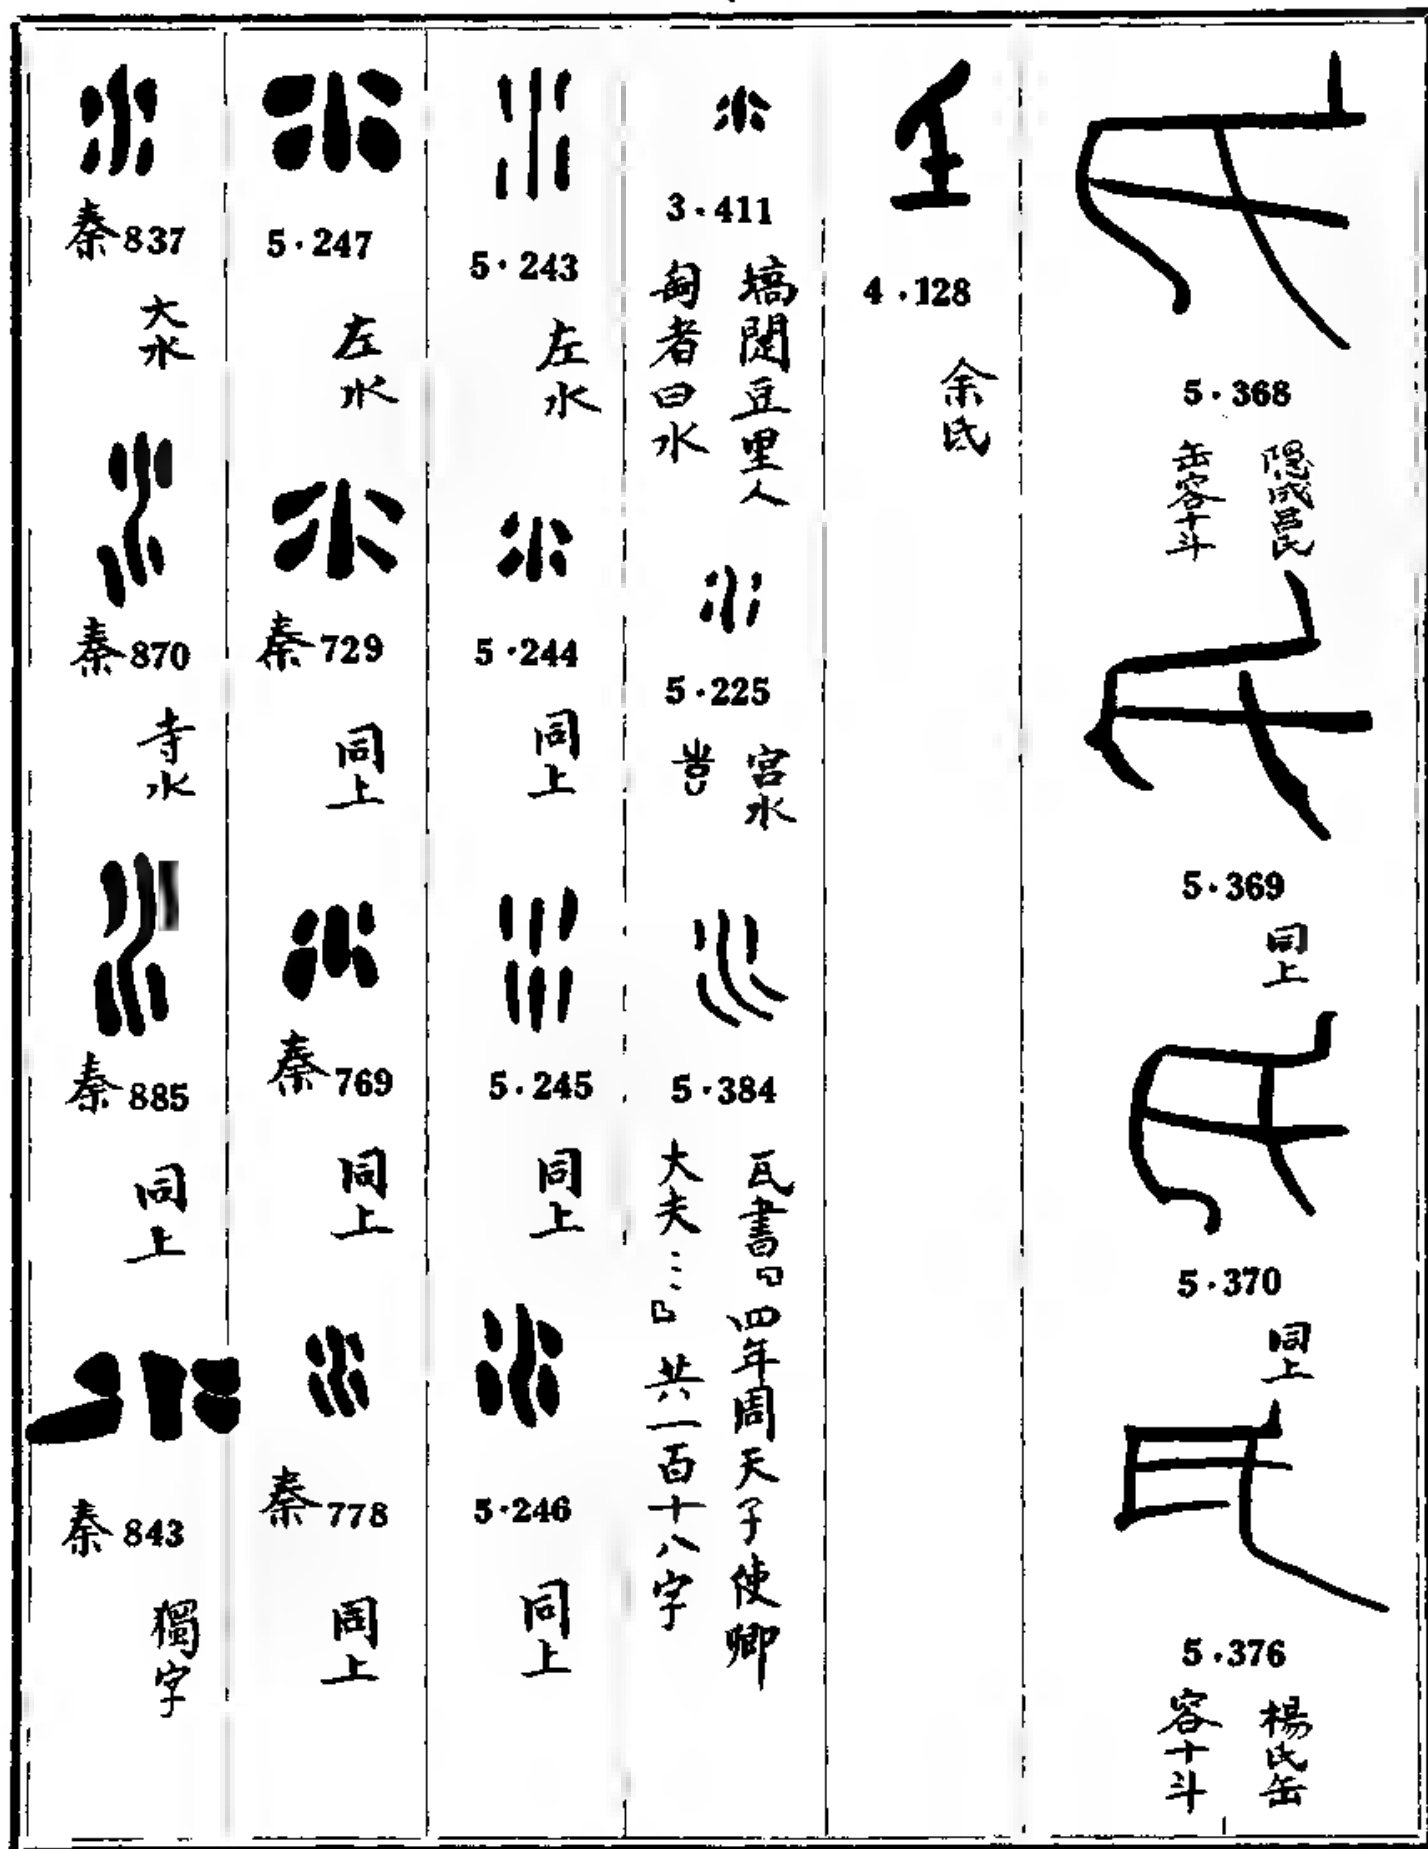 5·368
隱成呂氏
缶容十斗
5·369
同上
5·370
同上
5·376
楊氏缶
容十斗
4·128
余氏
3·411
塙閭豆里人
匋者曰水
5·225
宮水
5·384
瓦書『四年周天子使卿
大夫……』共一百十八字
5·243
左水
5·244
同上
5·245
同上
5·246
同上
5·247
左水
秦729
同上
秦769
同上
秦778
同上
秦837
大水
秦870
寺水
秦885
同上
秦843
獨字